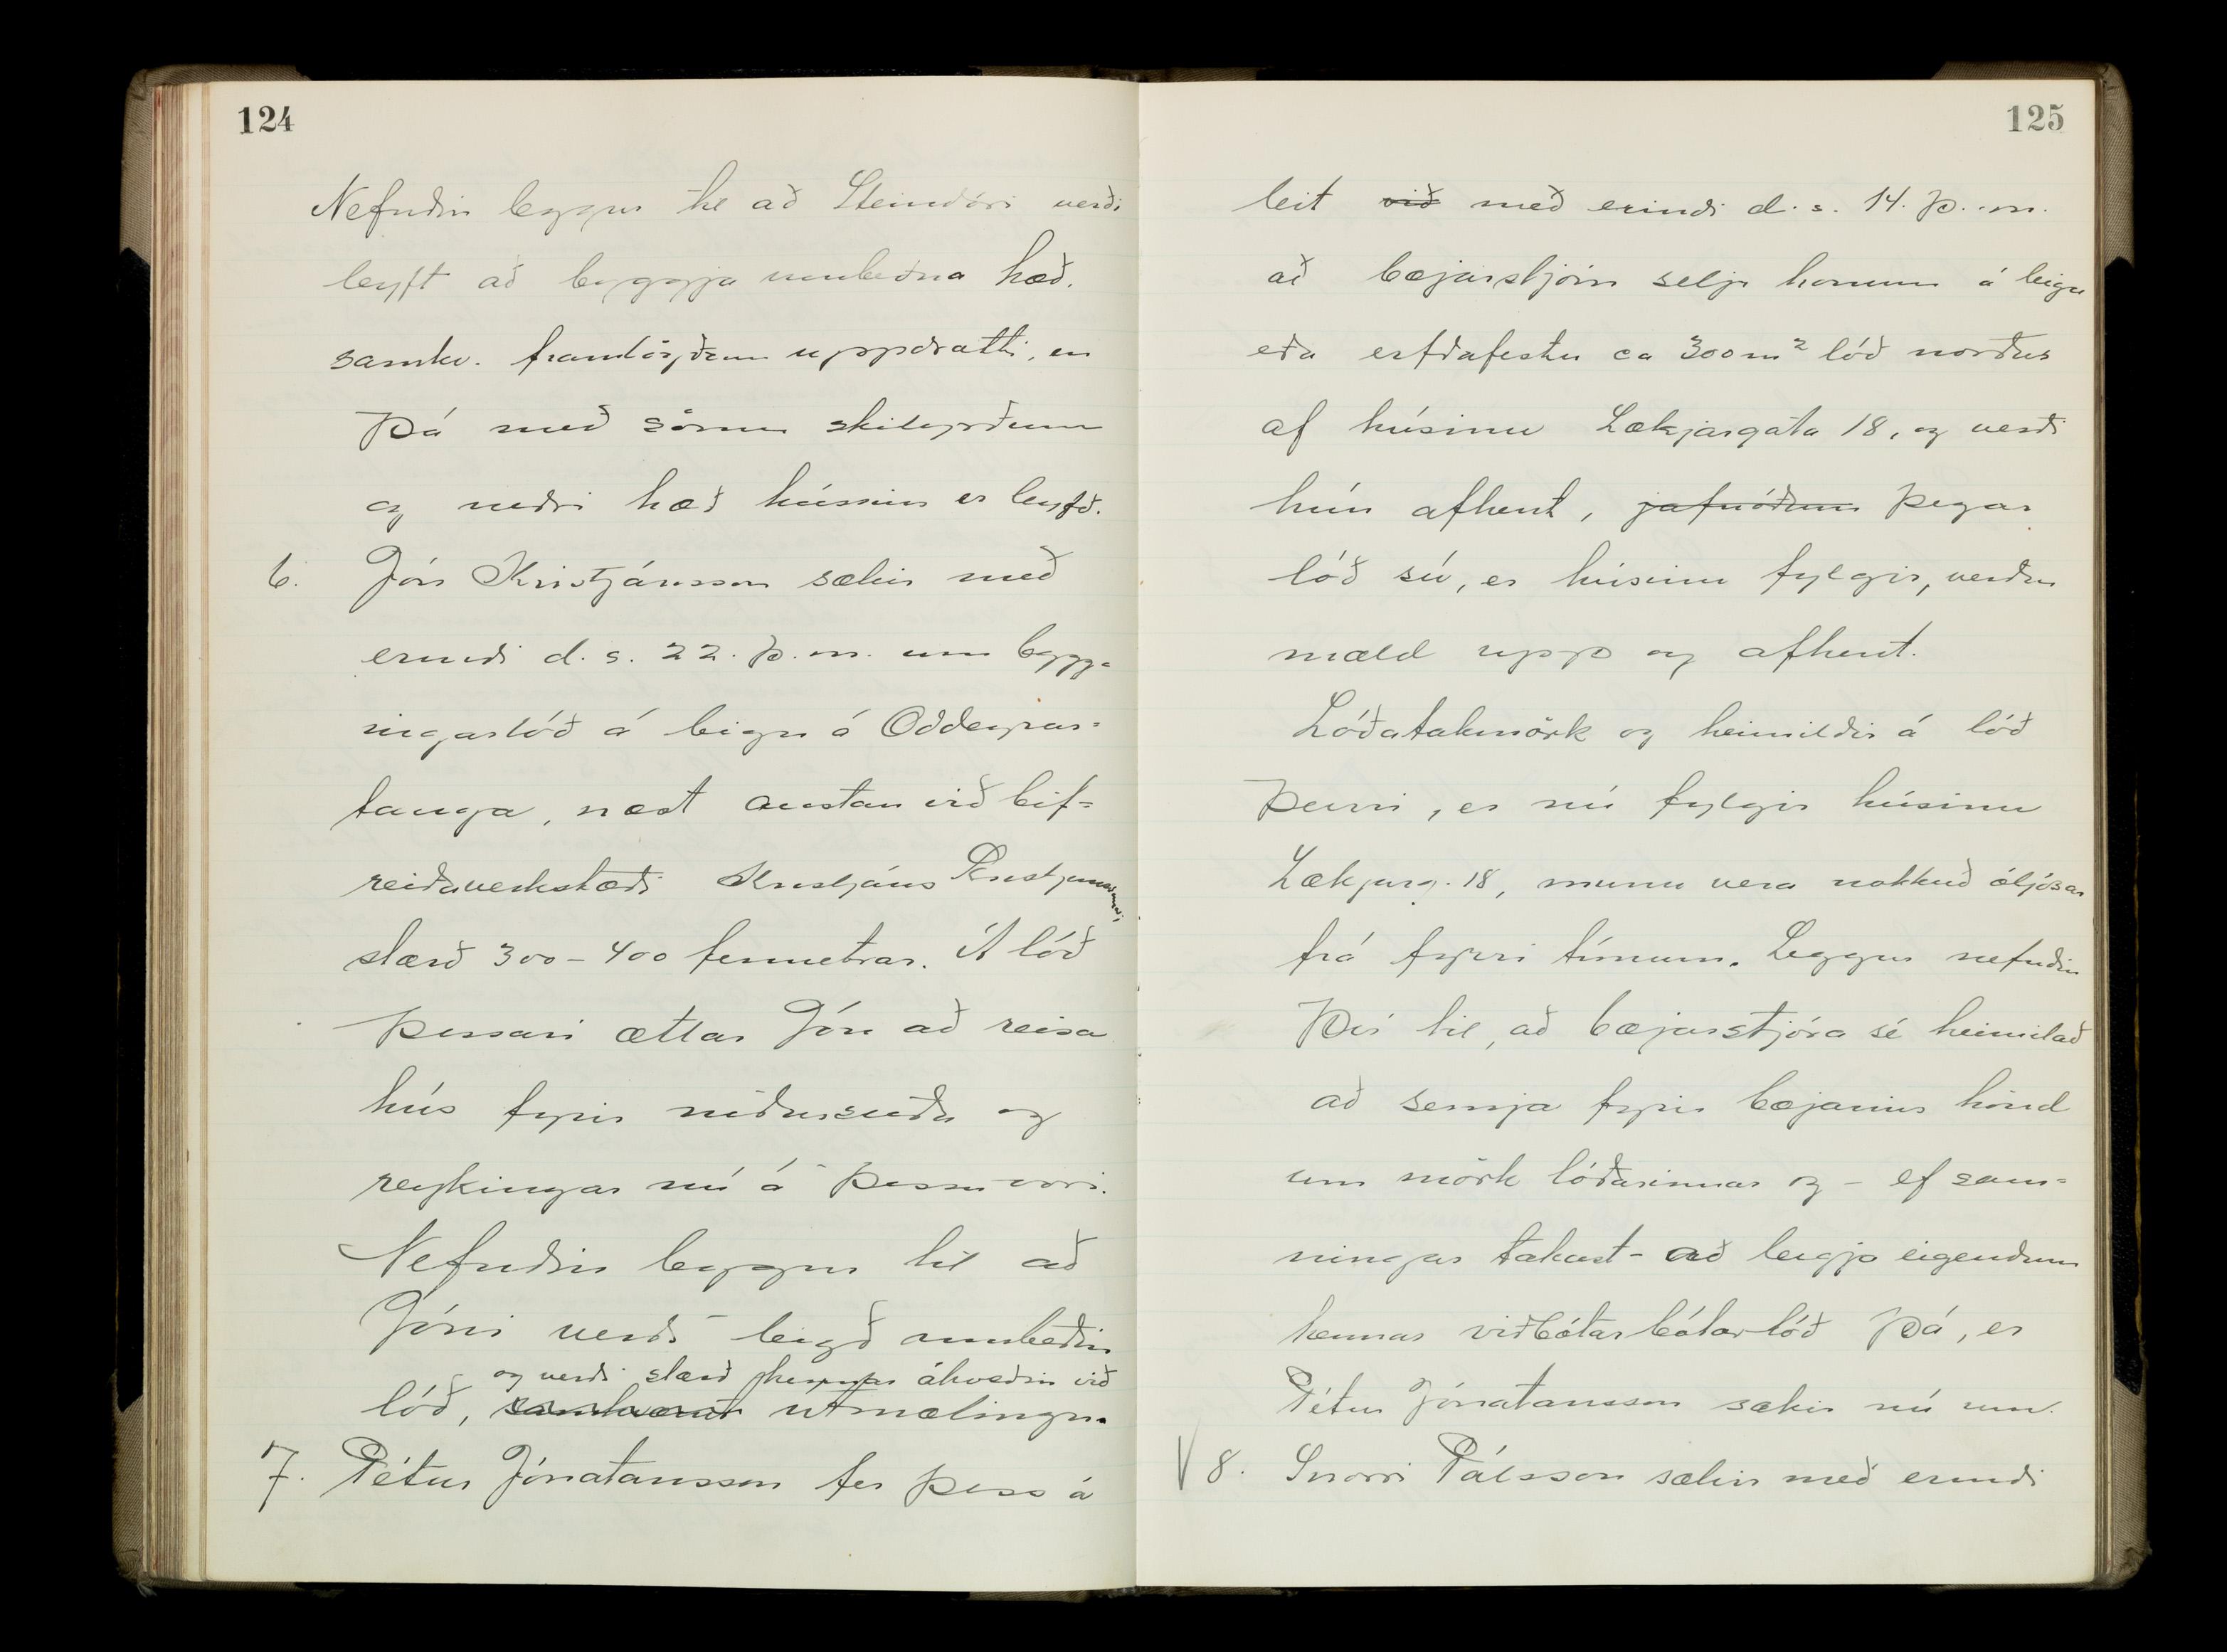 124
Nefndin leggur til að Steindóri verði
leyft að byggja umbeðna hæð,
samkv. framlögðum uppdrætti, en
þá með sömu skilyrðum
og neðri hæð hússins er leyfð.
6. Jón Kristjánsson sækir með
erindi d.s. 22. þ.m. um bygg-
ingarlóð á leigu á Oddeyrar=
tanga, næst austan við bif=
reiðaverkstæði Kristjáns Kristjánssonar,
stærð 300-400 fermetrar. Á lóð
þessari ætlar Jón að reisa
hús fyrir niðursuðu og
reykingar nú á þessu vori.
Nefndin leggur til að
Jóni verði leigð umbeðin
og verði stærð hennar ákveðin við
lóð, samkvæmt útmælingu.
7. Pétur Jónatansson fer þess á
125
leit við með erindi d.s. 14. þ.m.
að bæjarstjórn selji honum á leigu
eða erfðafestu ca 300 m² lóð norður
af húsinu Lækjargata 18, og verði
hún afhent, jafnóðum þegar
lóð sú, er húsinu fylgir, verður
mæld upp og afhent.
Lóðatakmörk og heimildir á lóð
þeirri, er nú fylgir húsinu
Lækjarg. 18, munu vera nokkuð óljósar
frá fyrri tímum. Leggur nefndin
því til, að bæjarstjóra sé heimilað
að semja fyrir bæjarins hönd
um mörk lóðarinnar og - ef sam=
ningar takast - að leigja eigendum
hennar viðbótarbótarlóð þá, er
Pétur Jónatansson sækir nú um.
V 8. Snorri Pálsson sækir með erindi